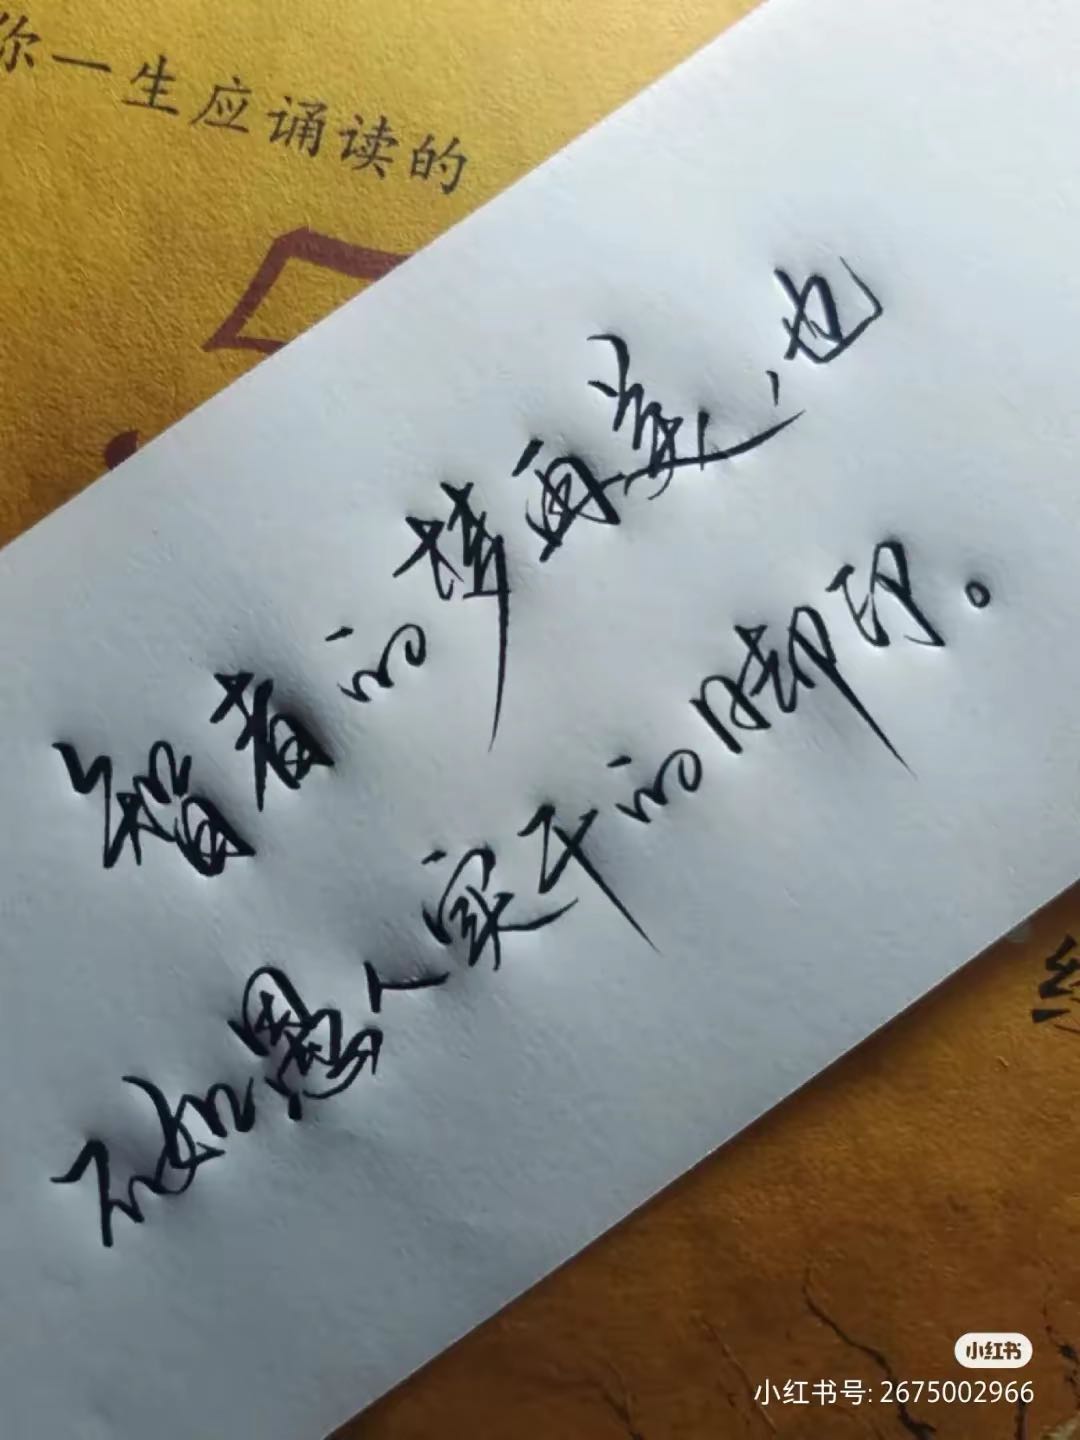 你一生应诵读的
智者的梦再美，也
不如愚人实干的脚印。
小红书
小红书号: 2675002966